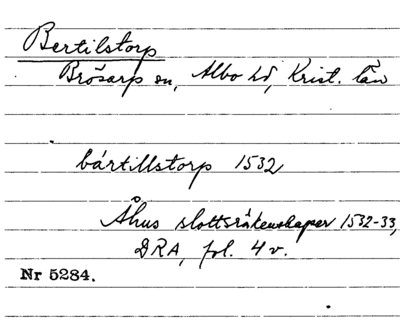 Bertilstorp
Brösarp sn, Albo hd, Krist. län
bártillstorp 1532
Åhus slottsräkenskaper 1532-33,
DRA, fol. 4 v.
Nr 5284.